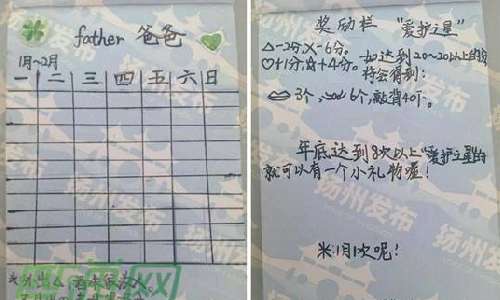 father 爸爸
1月~2月
一 二 三 四 五 六 日
奖励栏 "爱护之星"
△-2分,X-6分。
♡+1分,☆+4分。如达到20~20以上的话
将会得到:
3个, 6个,敲背40下。
年底达到8次以上"爱护之星的
就可以有一个小礼物喔!
米1月1次呢!
扬州发布
扬州发布
扬州发布